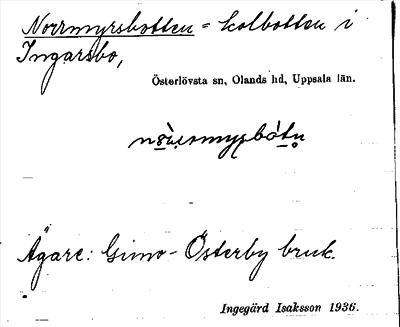 Norrmyrsbotten = kolbotten i
Ingarsbo,
Österlövsta sn, Olands hd, Uppsala län.
Ägare: Gimo-Österby bruk.
Ingegärd Isaksson 1936.